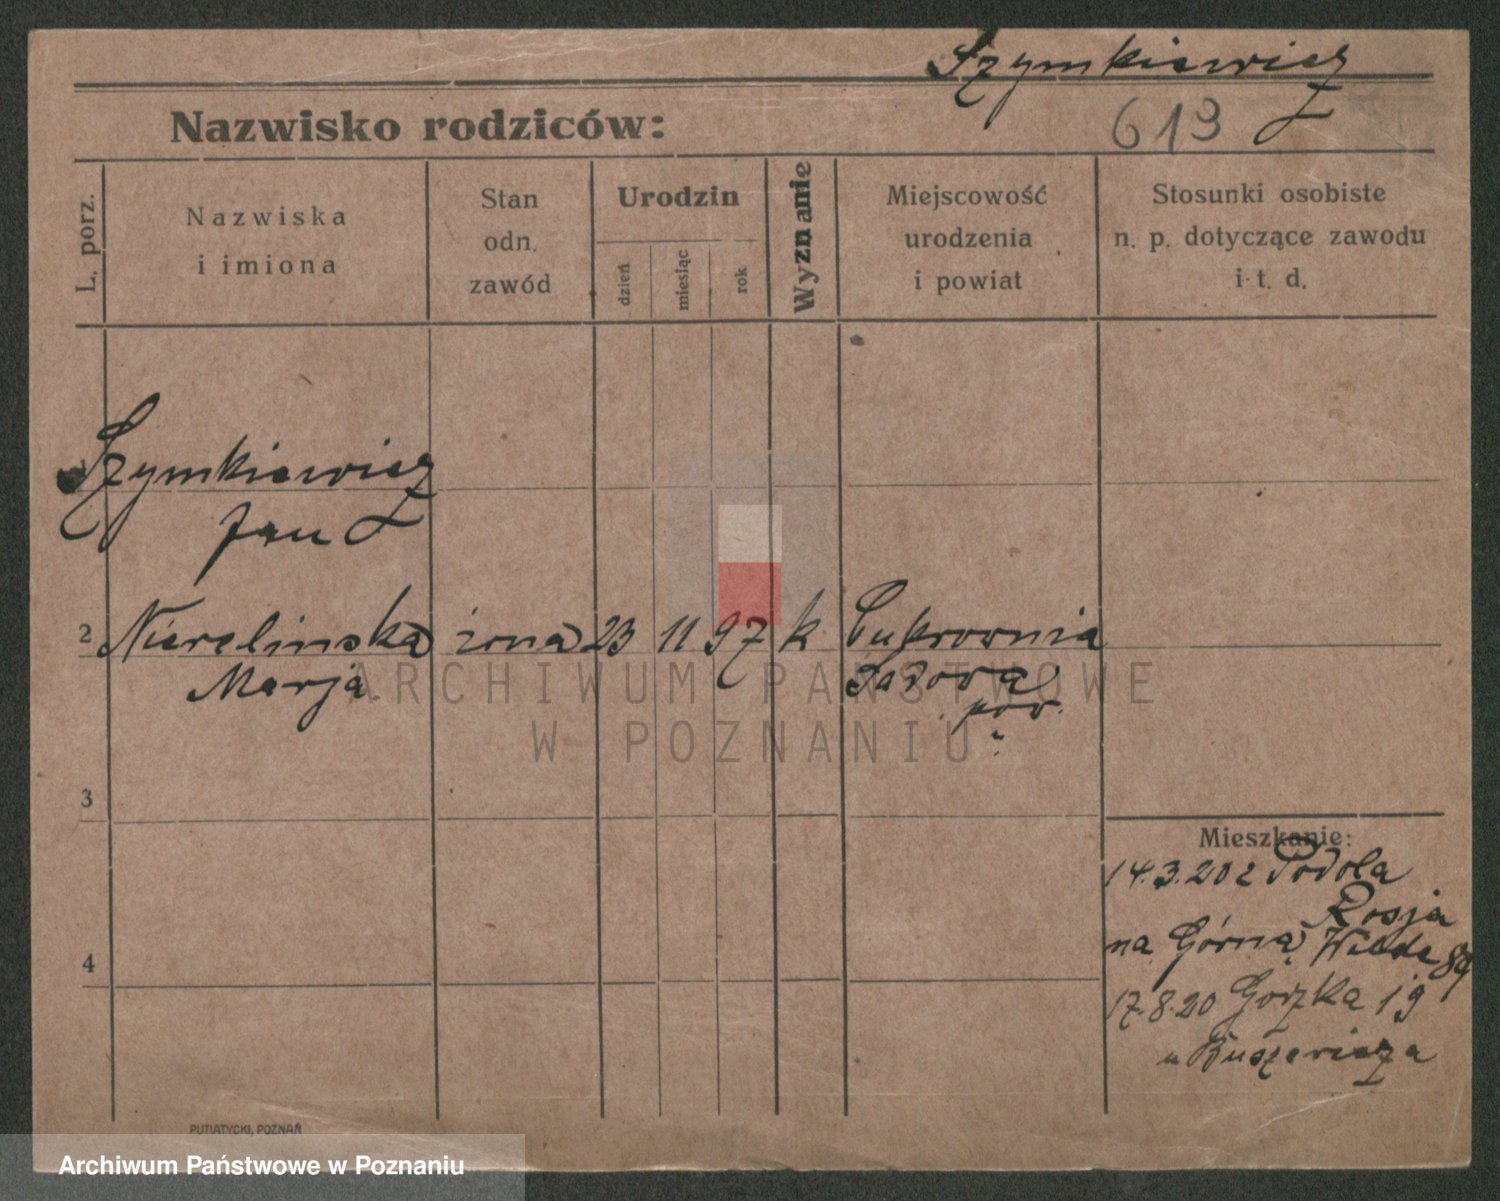 Szymkiewicz
613
Nazwisko rodziców:
L. porz.
Nazwiska
i imiona
Stan
odn.
zawód
Urodzin
dzień
miesiąc
rok
Wyznanie
Miejscowość
urodzenia
i powiat
Stosunki osobiste
n. p. dotyczące zawodu
i t. d.
Szymkiewicz
Jan
2 żona 23 11 97 k Cukrownia
Marja
pow.
3
4
Mieszkanie:
14.3.20 z Podola
Rosja
na Górną Wilde 89
17.8.20 Gorzka 19
u Buszewicza
ARCHIWUM PAŃSTWOWE
W POZNANIU
PUTIATYCKI, POZNAŃ
Archiwum Państwowe w Poznaniu